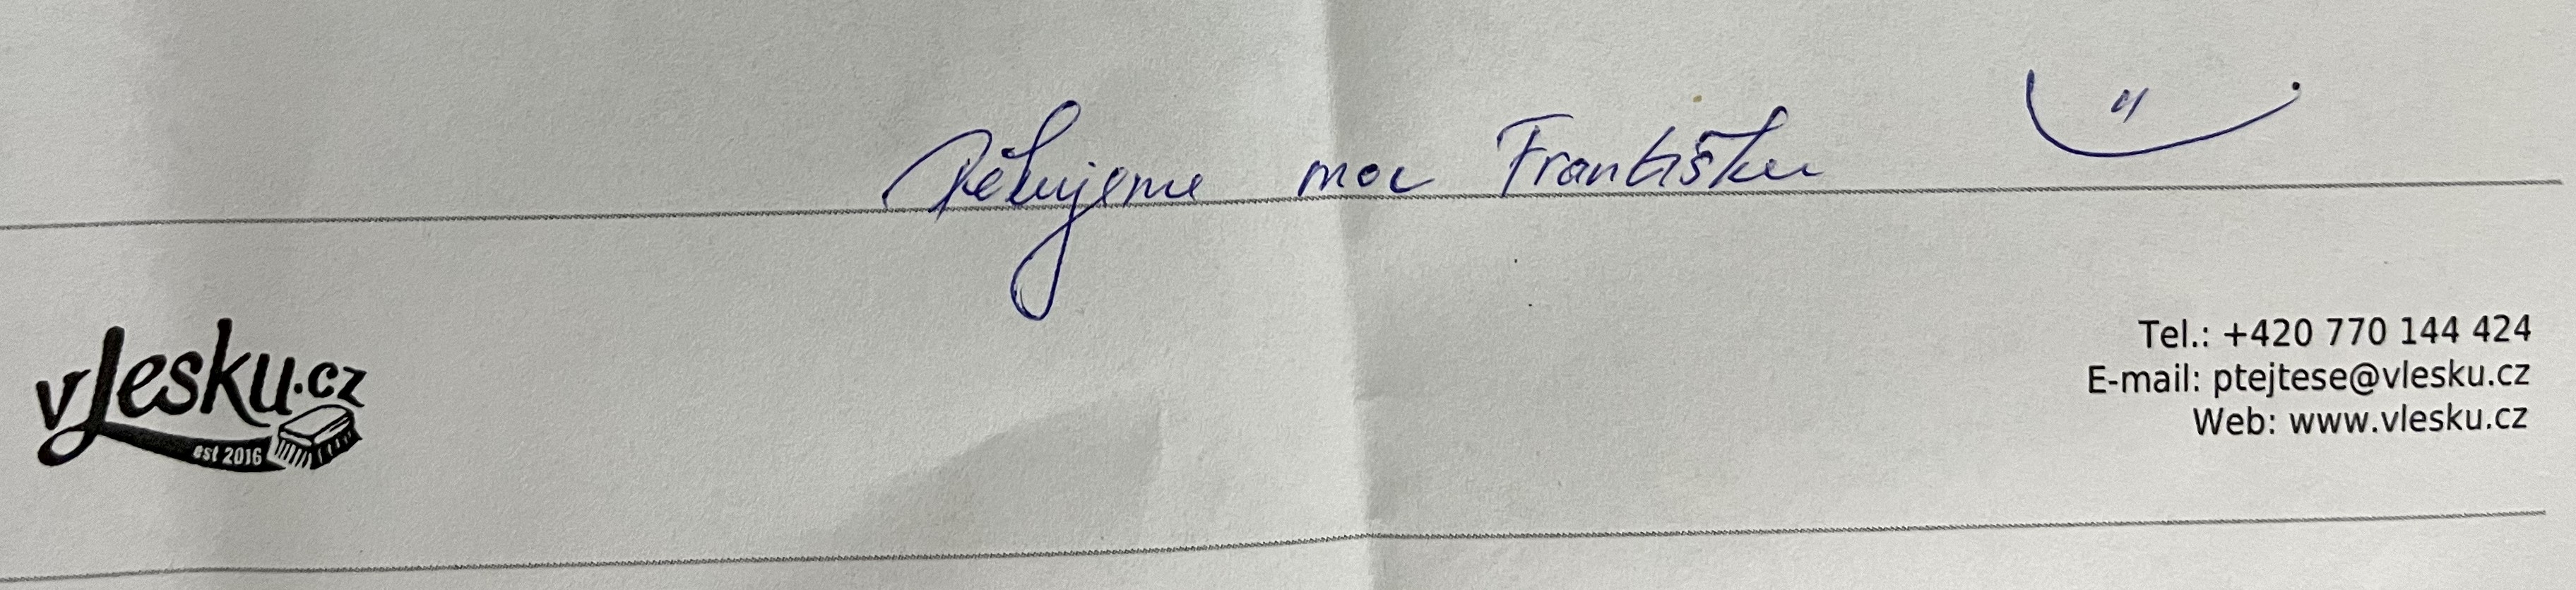 Děkujeme moc Františku
vlesku.cz
est 2016
Tel.: +420 770 144 424
E-mail: ptejtese@vlesku.cz
Web: www.vlesku.cz